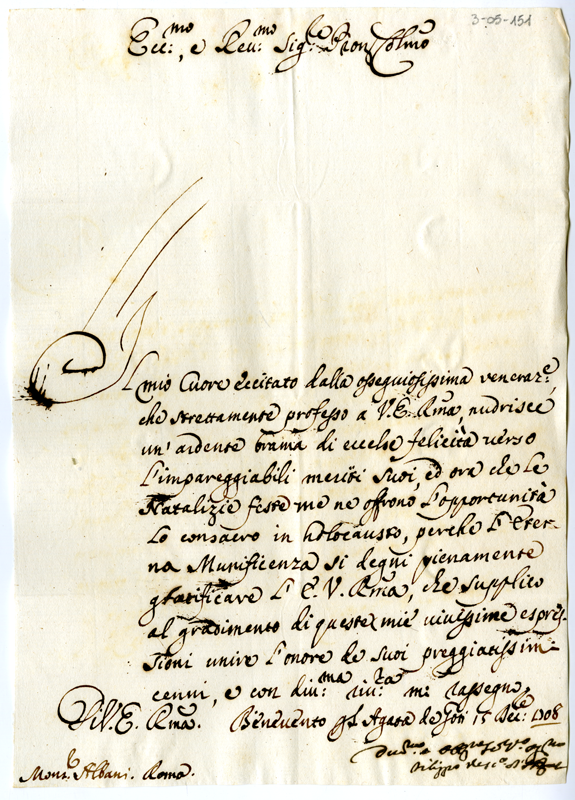 3-05-151
Ecc:mo, e Reu:mo Sig:re Pron Colmo
Il mio Cuore eccitato dalla ossequiosissima veneraz:e
che strettamente professo a V.E. Rma, nudrisce
un' ardente brama di eccelse felicità verso
l'impareggiabili meriti suoi, ed ora che le
Natalizie feste me ne offrono l'opportunità
lo consacro in holocausto, perche l'Eter-
na Munificenza si degni pienamente
gratificare l'E.V. Rma, che supplico
al gradimento di queste mie viuissime espres-
sioni unire l'onore de suoi preggiatissim
cenni, e con diu:ma riu:za mi rassegno
Di V.E. Rma. Beneuento p S. Agata de Goti 15 Dec:e 1708
Mons:r Albani. Roma.
Filippo